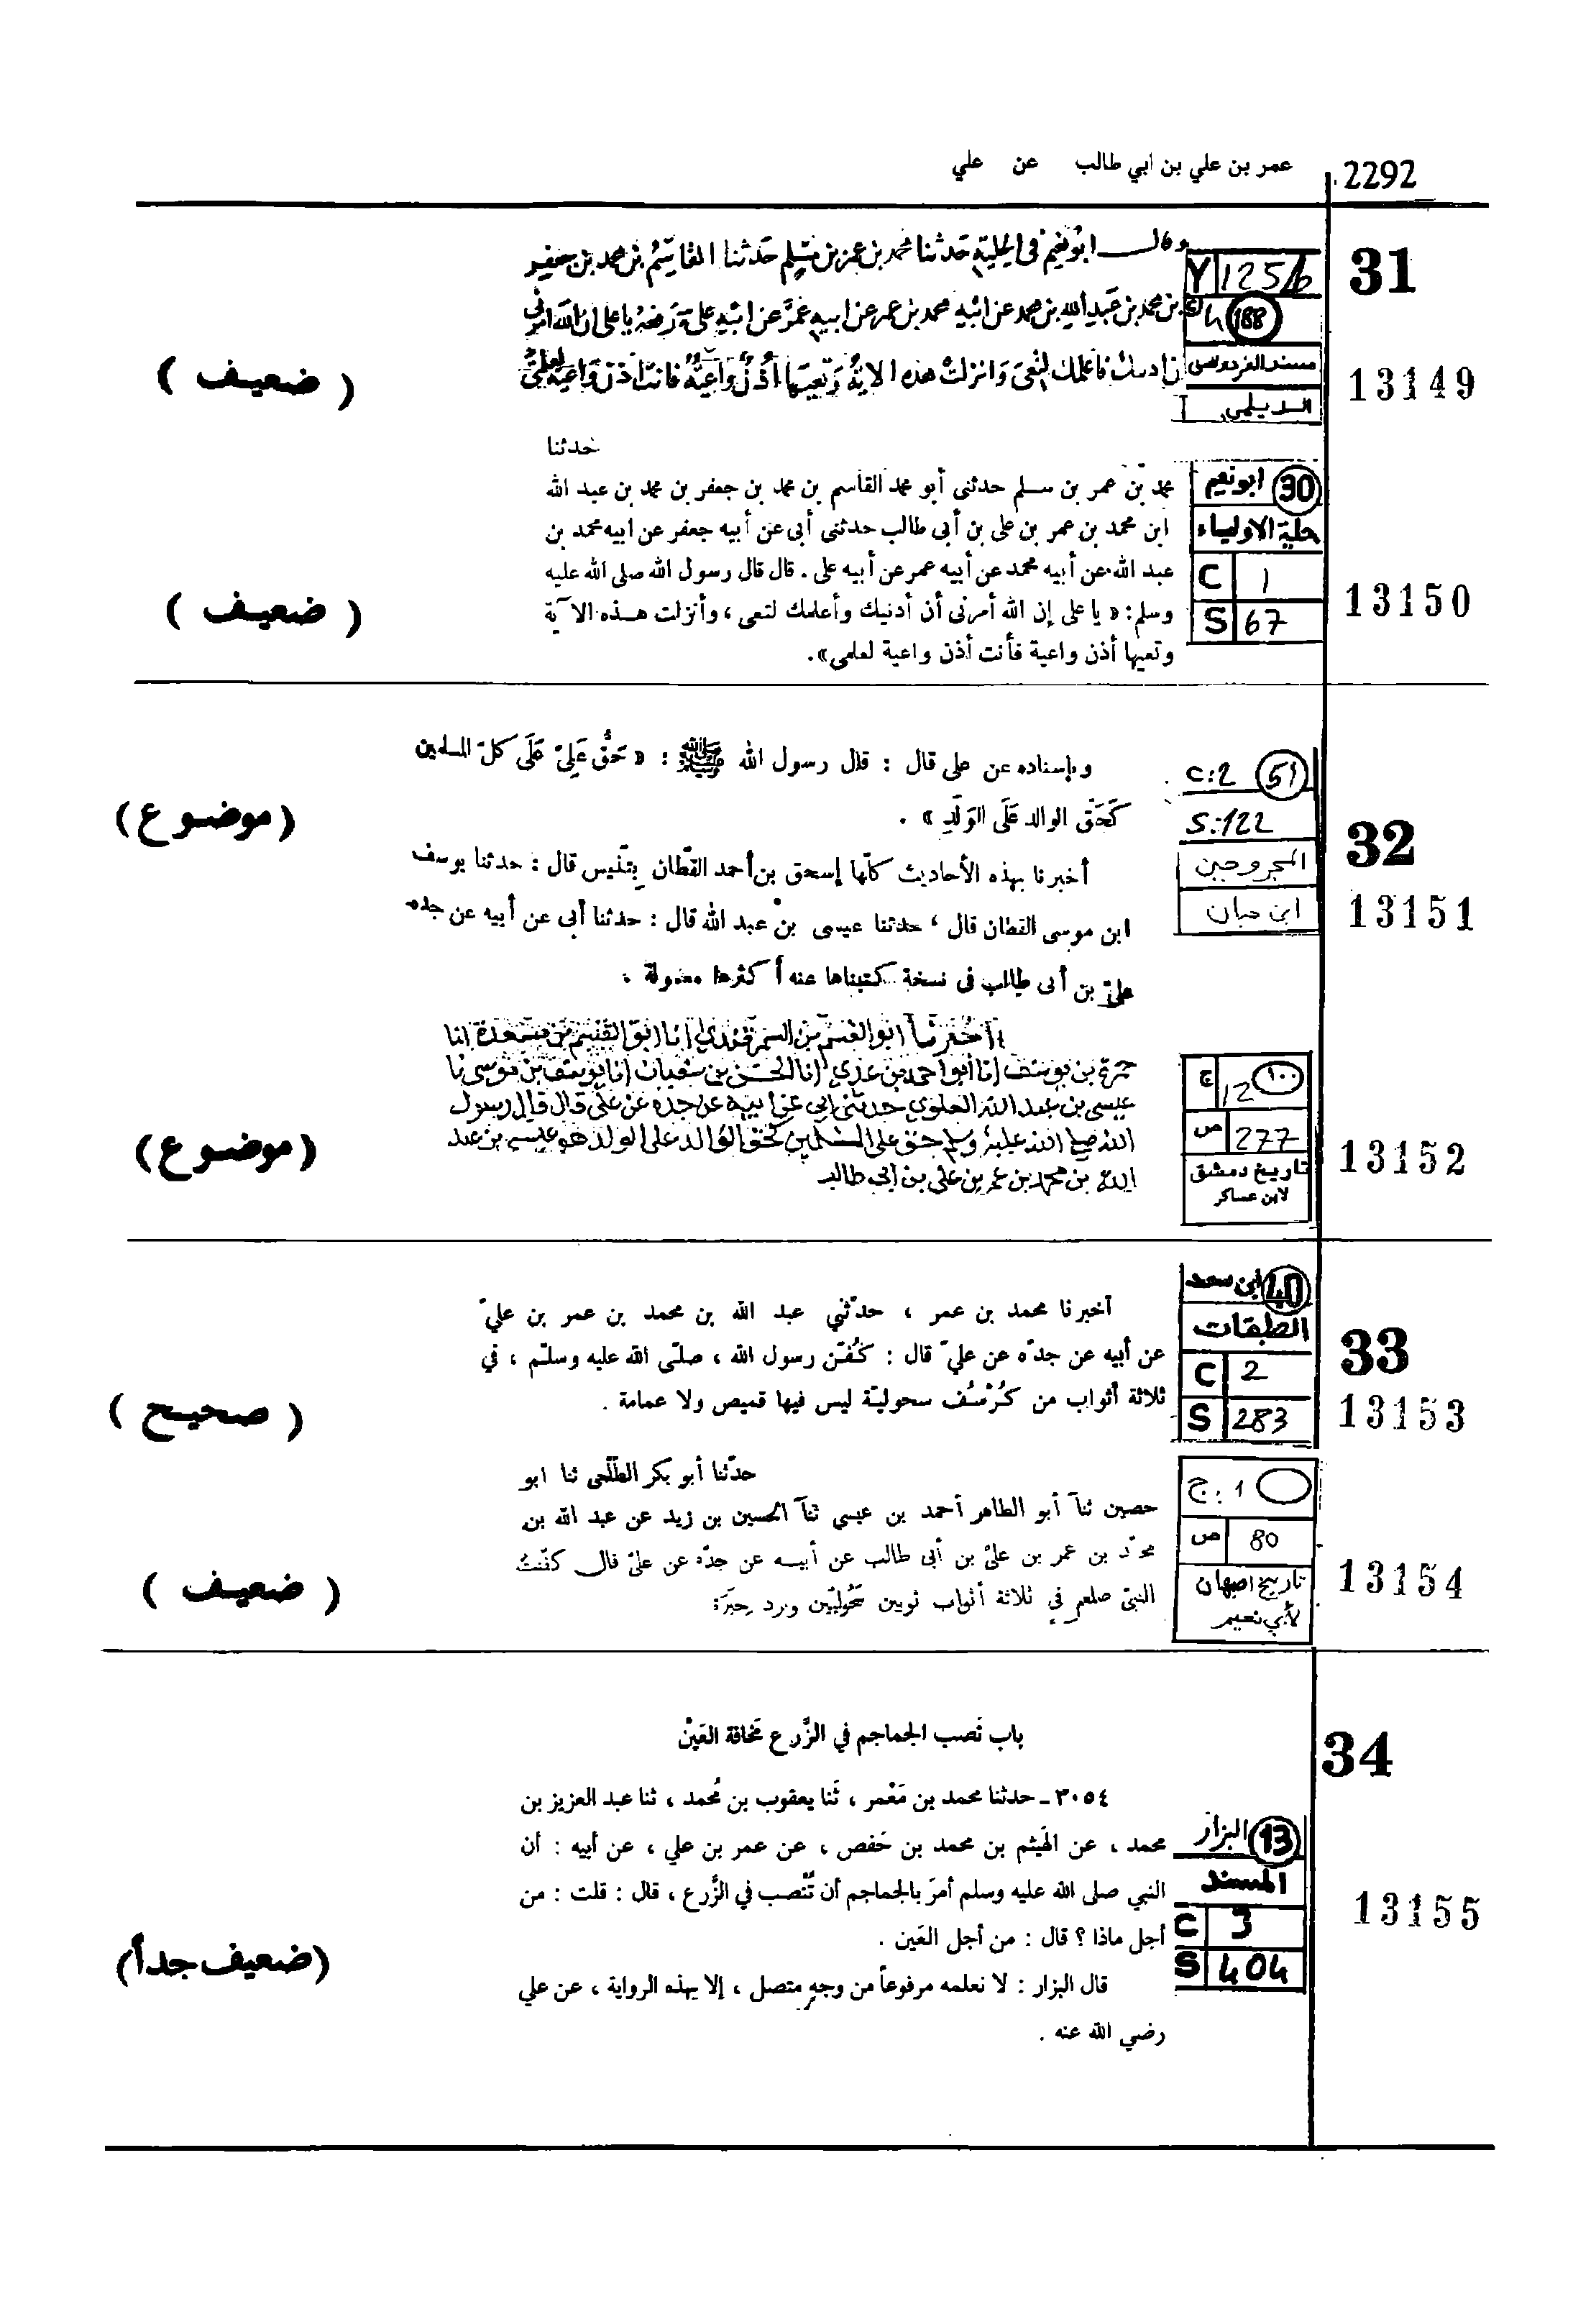 2292 عمر بن علي بن ابي طالب عن علي
31
وقال ابو نعيم في الحلية حدثنا محمد بن عمر بن سلم حدثنا القاسم بن محمد بن جعفر
بن محمد بن عبد الله بن محمد عن ابيه محمد بن عمر عن ابيه عمر عن ابيه علي رفعه يا علي ان الله امرني
ان ادنيك فاعلمك لتعي وانزلت هذه الاية وتعيها اذن واعية فانت اذن واعية لعلمي
Y 125/b
188
مسند الفردوس
الديلمي
13149
( ضعيف )
حدثنا
محمد بن عمر بن سلم حدثنى أبو محمد القاسم بن محمد بن جعفر بن محمد بن عبد الله
ابن محمد بن عمر بن على بن أبى طالب حدثنى أبى عن أبيه جعفر عن ابيه محمد بن
عبد الله عن أبيه محمد عن أبيه عمر عن أبيه على . قال قال رسول الله صلى الله عليه
وسلم : « يا على إن الله أمرنى أن أدنيك وأعلمك لتعى ، وأنزلت هـذه الآية
وتعيها أذن واعية فأنت أذن واعية لعلمى » .
ابونعيم 30
حلية الاولياء
C 1
S 67
13150
( ضعيف )
32
وبإسناده عن على قال : قال رسول الله ﷺ : « حَقُّ عَلِىّ عَلَى كلّ المسلمين
كَحَقّ الوالد عَلَى الوَلَدِ » .
أخبرنا بهذه الأحاديث كلّها إسحق بن أحمد القطّان بِتنّيس قال : حدثنا يوسف
ابن موسى القطان قال ، حدثنا عيسى بن عبد الله قال : حدثنا أبى عن أبيه عن جده
علىّ بن أبى طالب فى نسخة كتبناها عنه أكثرها معمولة .
C:2 51
S:122
المجروحين
ابن حبان
13151
(موضوع)
اخبرنا ابو القسم بن السمرقندي انا ابو القسم بن مسعدة انا
حمزة بن يوسف انا ابو احمد بن عدي انا الحسن بن سفيان انا يوسف بن موسى نا
عيسى بن عبد الله العلوي حدثني ابي عن ابيه عن جده عن علي قال قال رسول
الله صلى الله عليه وسلم حق علي على المسلمين كحق الوالد على الولد هو عيسى بن عبد
الله بن محمد بن عمر بن علي بن ابي طالب
ج 12 ١٠٠
ص 277
تاريخ دمشق
لابن عساكر
13152
(موضوع)
33
أخبرنا محمد بن عمر ، حدّثني عبد الله بن محمد بن عمر بن عليّ
عن أبيه عن جدّه عن عليّ قال : كُفّن رسول الله ، صلّى الله عليه وسلّم ، في
ثلاثة أثواب من كُرْسُف سحوليّة ليس فيها قميص ولا عمامة .
ابن سعد 40
الطبقات
C 2
S 283
13153
( صحيح )
حدّثنا أبو بكر الطَلْحى ثنا ابو
حصين ثنآ أبو الطاهر أحمد بن عيسى ثنآ الحسين بن زيد عن عبد الله بن
محمّد بن عمر بن علىّ بن أبى طالب عن أبيـه عن جدّه عن علىّ قال كفّنتُ
النبىّ صلعم في ثلاثة أثواب ثوبين سَحُوليّين وبرد حِبَرَة
ج: 1
ص 80
تاريخ اصبهان
لأبي نعيم
13154
( ضعيف )
34
باب نَصب الجماجم في الزَّرع مَخافة العَيْن
٣٠٥٤ ـ حدثنا محمد بن مَعْمر ، ثَنا يعقوب بن مُحمد ، ثنا عبد العزيز بن
محمد ، عن الهَيثم بن محمد بن حَفص ، عن عمر بن علي ، عن أبيه : أن
النبي صلى الله عليه وسلم أمرَ بالجماجم أن تُنْصب في الزَّرع ، قال : قلت : من
أجل ماذا ؟ قال : من أجل العَين .
قال البزار : لا نعلمه مرفوعاً من وجهٍ متصل ، إلا بهذه الرواية ، عن علي
رضي الله عنه .
البزار 13
المسند
C 3
S 404
13155
(ضعيف جداً)